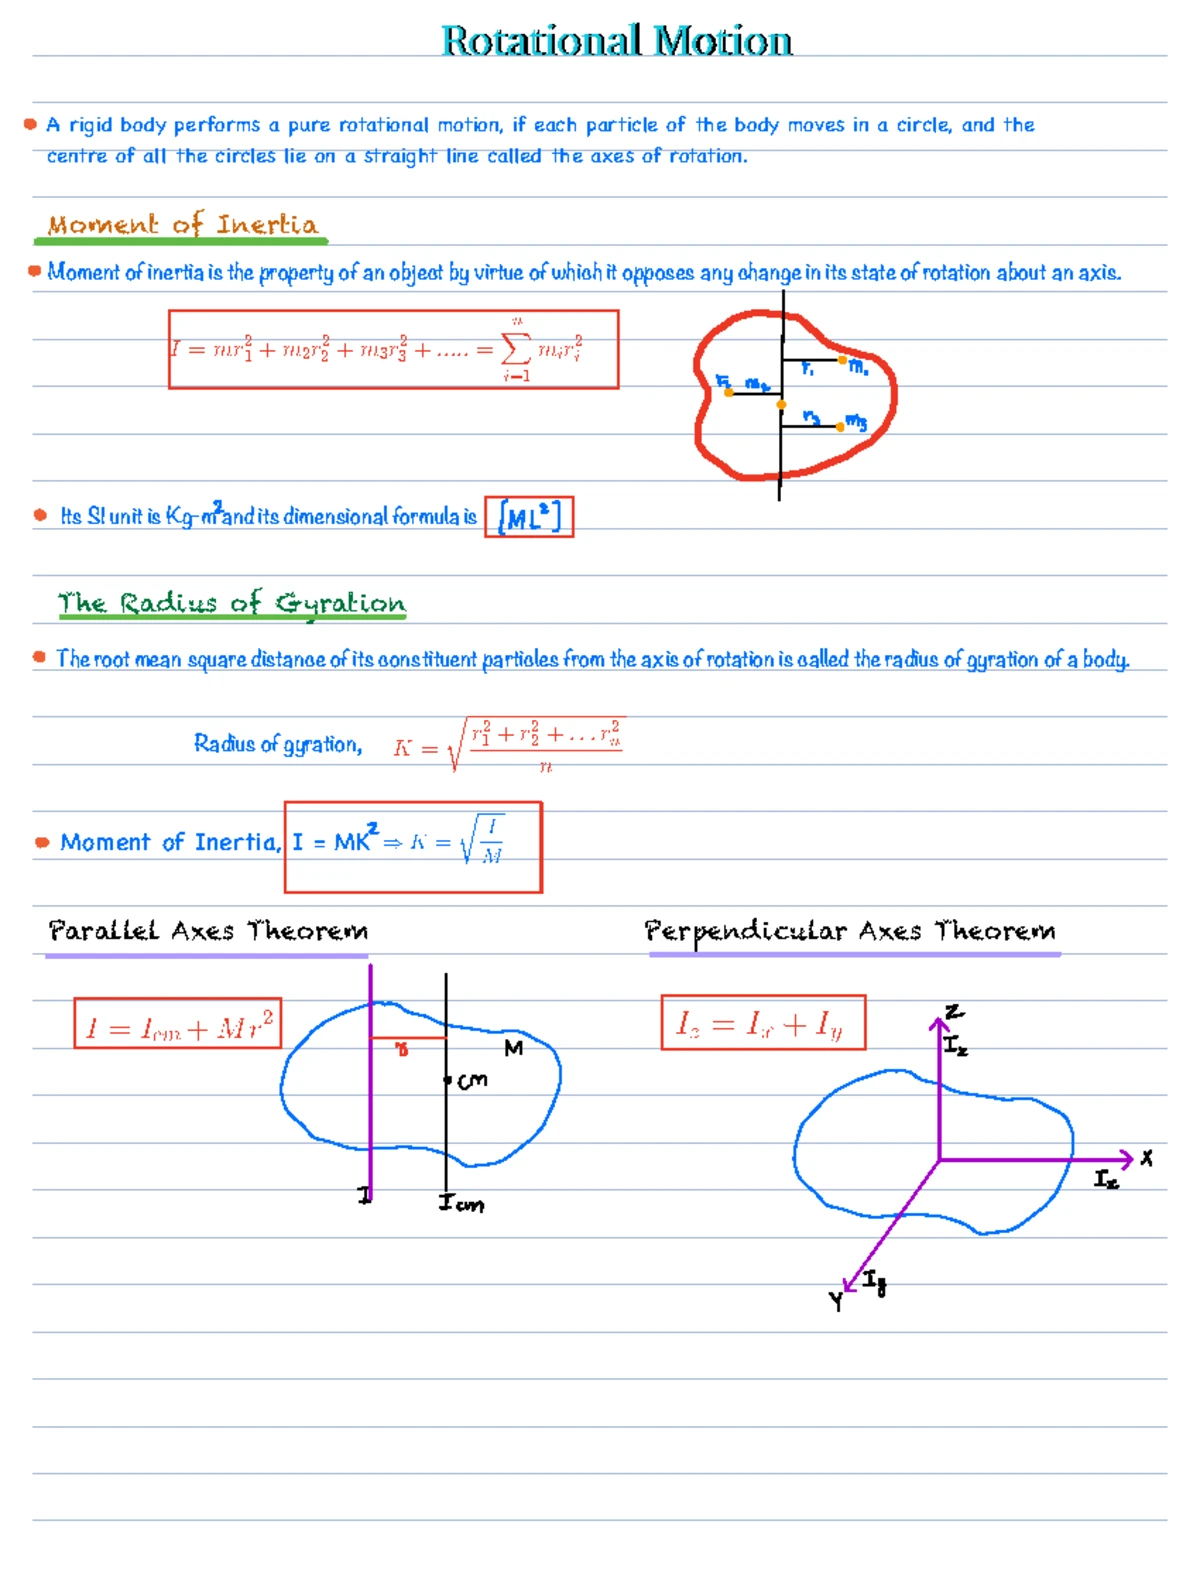 Rotational Motion
A rigid body performs a pure rotational motion, if each particle of the body moves in a circle, and the
centre of all the circles lie on a straight line called the axes of rotation.
Moment of Inertia
Moment of inertia is the property of an object by virtue of which it opposes any change in its state of rotation about an axis.
I = mr₁² + m₂r₂² + m₃r₃² + ..... = ∑ⁿᵢ₌₁ mᵢrᵢ²
r₁ m₁
r₂ m₂
r₃ m₃
Its SI unit is Kg-m² and its dimensional formula is [ML²]
The Radius of Gyration
The root mean square distance of its constituent particles from the axis of rotation is called the radius of gyration of a body.
Radius of gyration, K = √((r₁² + r₂² + ... rₙ²)/n)
Moment of Inertia, I = MK² ⇒ K = √(I/M)
Parallel Axes Theorem
I = Icm + Mr²
r
M
cm
I
Icm
Perpendicular Axes Theorem
I_z = I_x + I_y
Z
I_z
X
I_x
I_y
Y